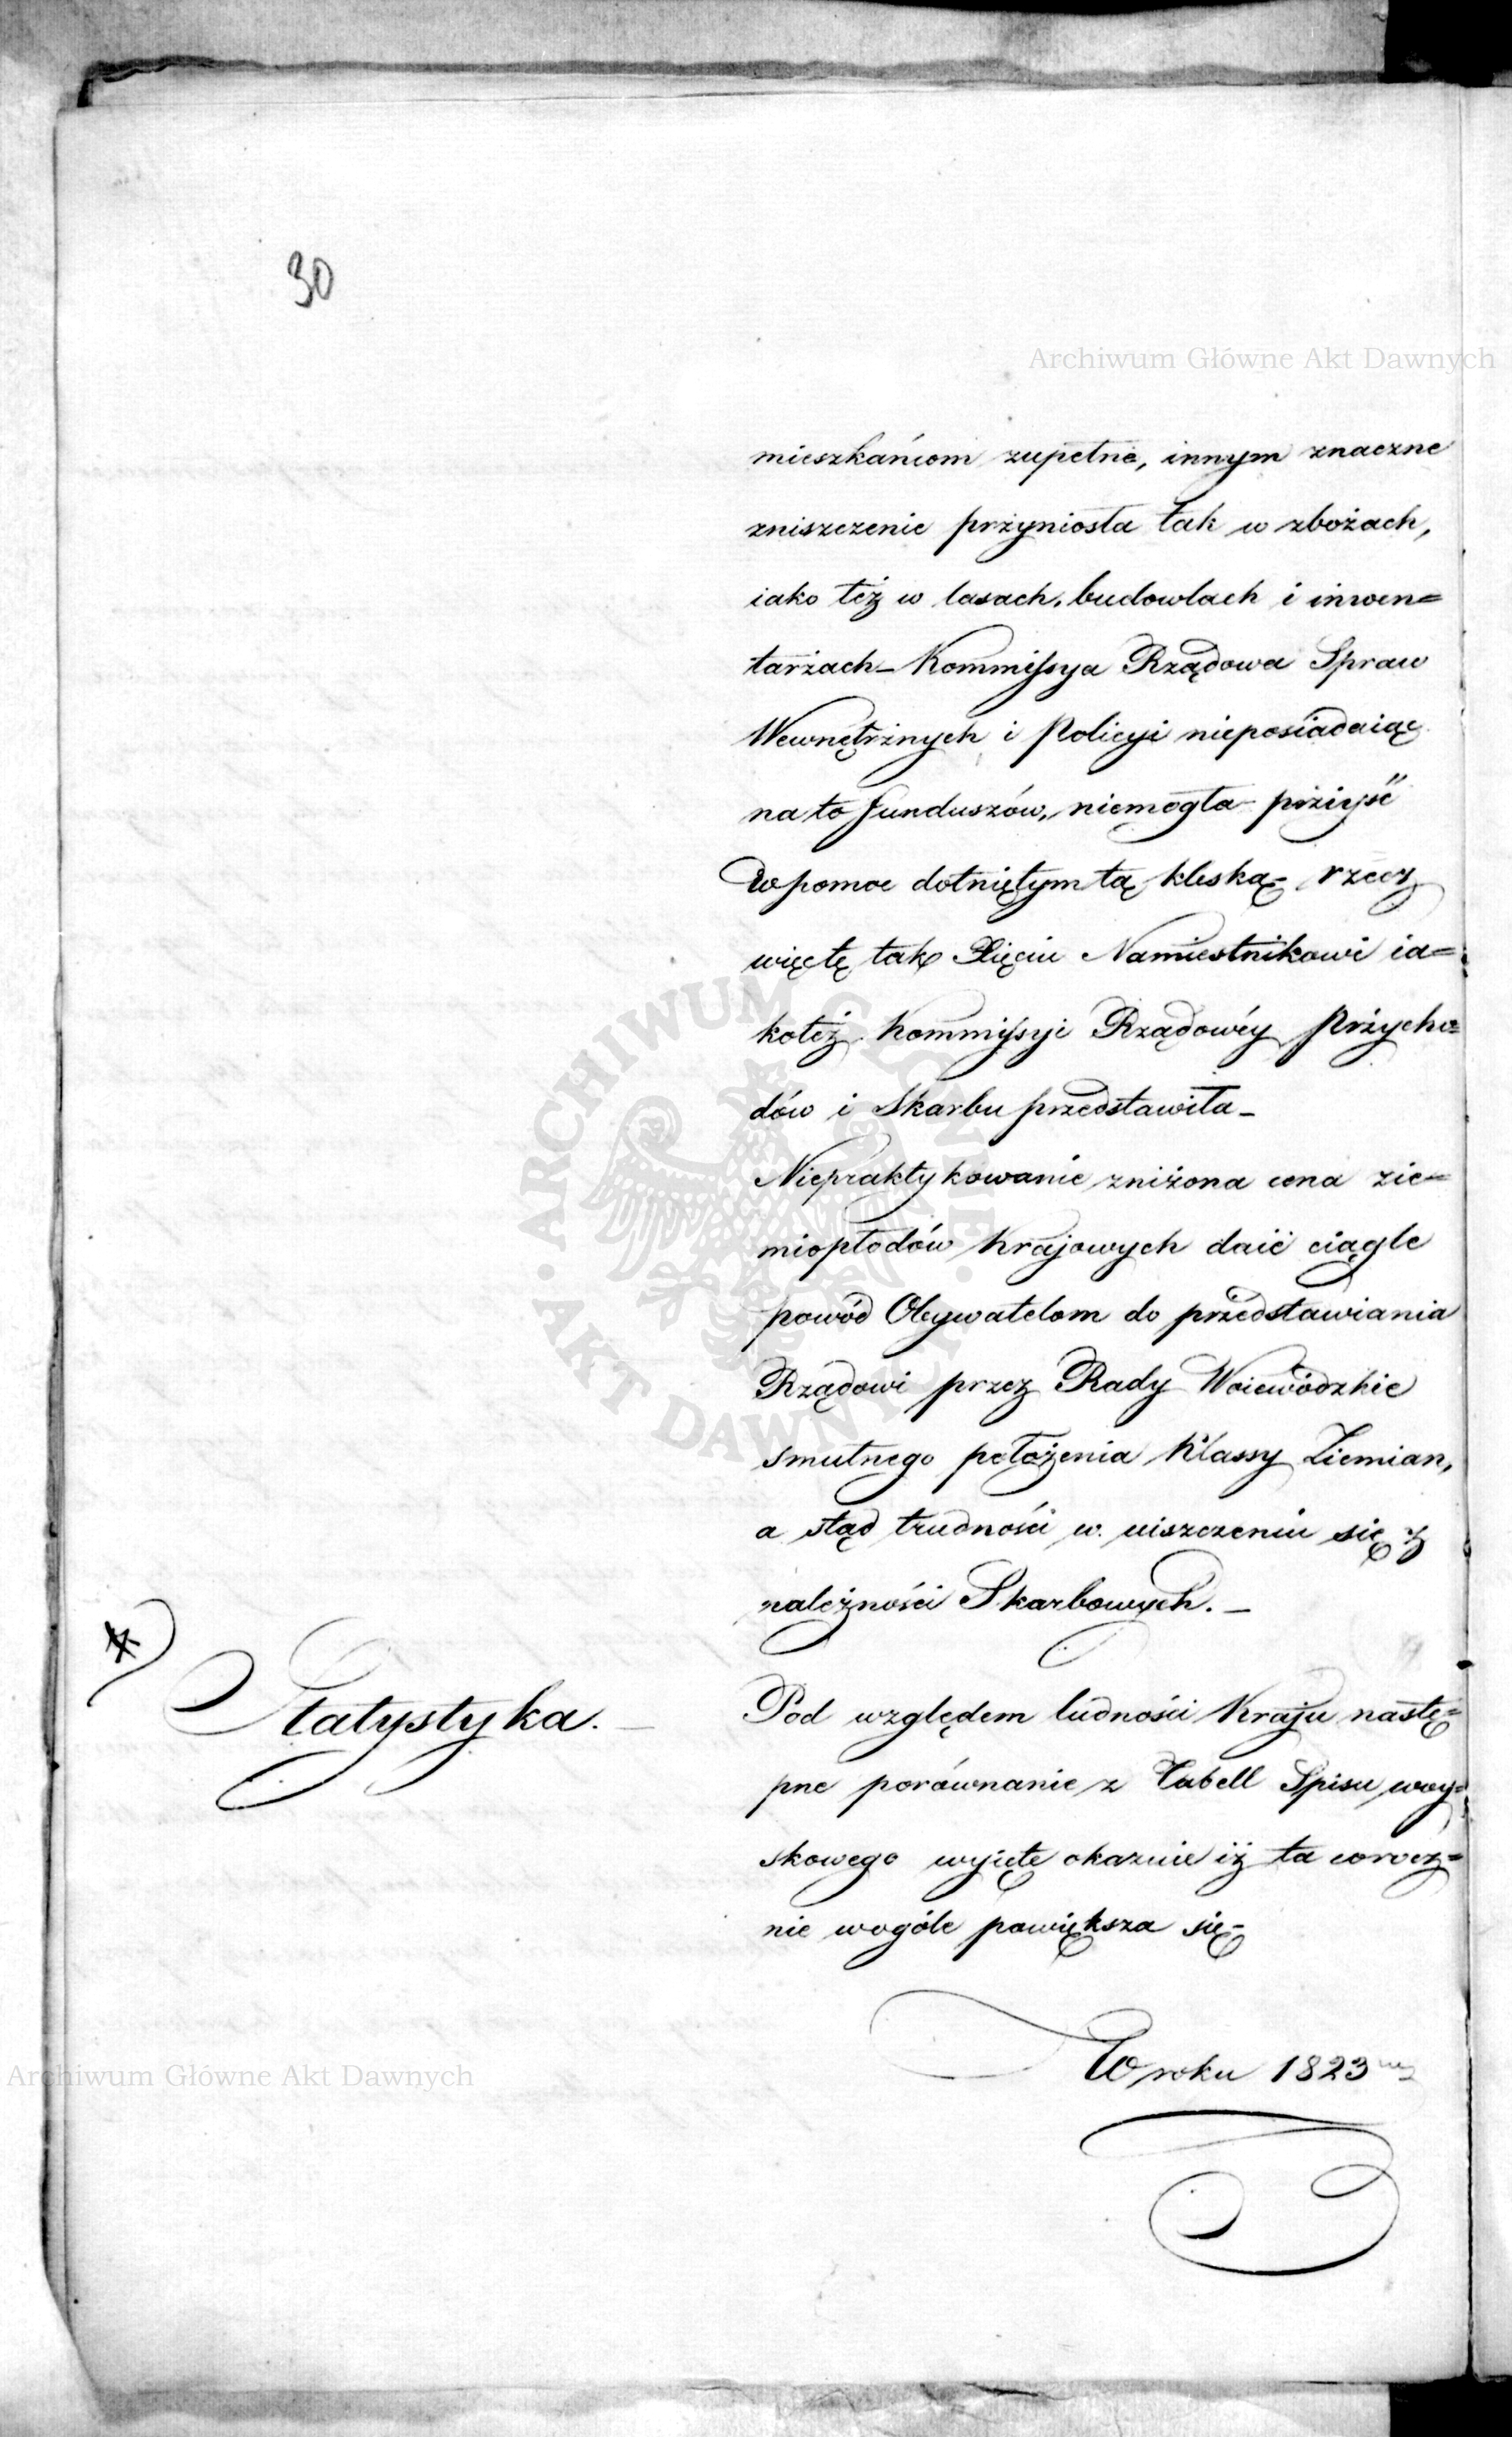 30
Archiwum Główne Akt Dawnych
mieszkańcom zupełne, innym znaczne
zniszczenie przyniosła tak w zbożach,
iako też w lasach, budowlach i inwen=
tarzach – Kommissya Rządowa Spraw
Wewnętrznych i Policyi nieposiadaiąc
na to funduszów, niemogła przyiść
w pomoc dotniętym tą klęską – rzecz
więc tę tak Xięciu Namiestnikowi ia=
koteż Kommissyi Rządowéy Przycho=
dów i Skarbu przedstawiła –
Niepraktykowanie zniżona cena zie=
miopłodów Krajowych daie ciągle
powód Obywatelom do przedstawiania
Rządowi przez Rady Woiewódzkie
smutnego położenia Klassy Ziemian,
a stąd trudności w uiszczeniu się z
należności Skarbowych. –
*
Statystyka. –
Pod względem ludności Kraju nastę=
pne porównanie z Tabell Spisu woy=
skowego wyięte okazuie iż ta corocz=
nie wogóle powiększa się –
W roku 1823
Archiwum Główne Akt Dawnych
ARCHIWUM GŁÓWNE AKT DAWNYCH